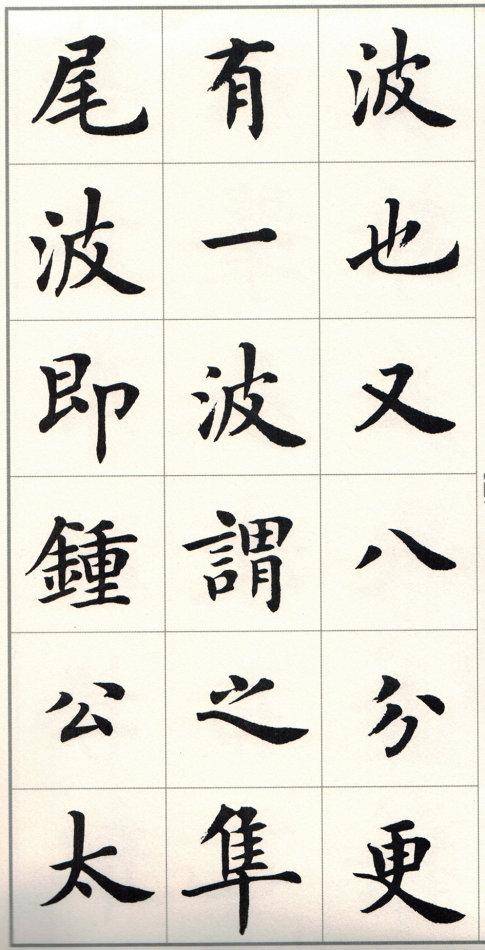 波也又八分更
有一波謂之隼
尾波即鍾公太